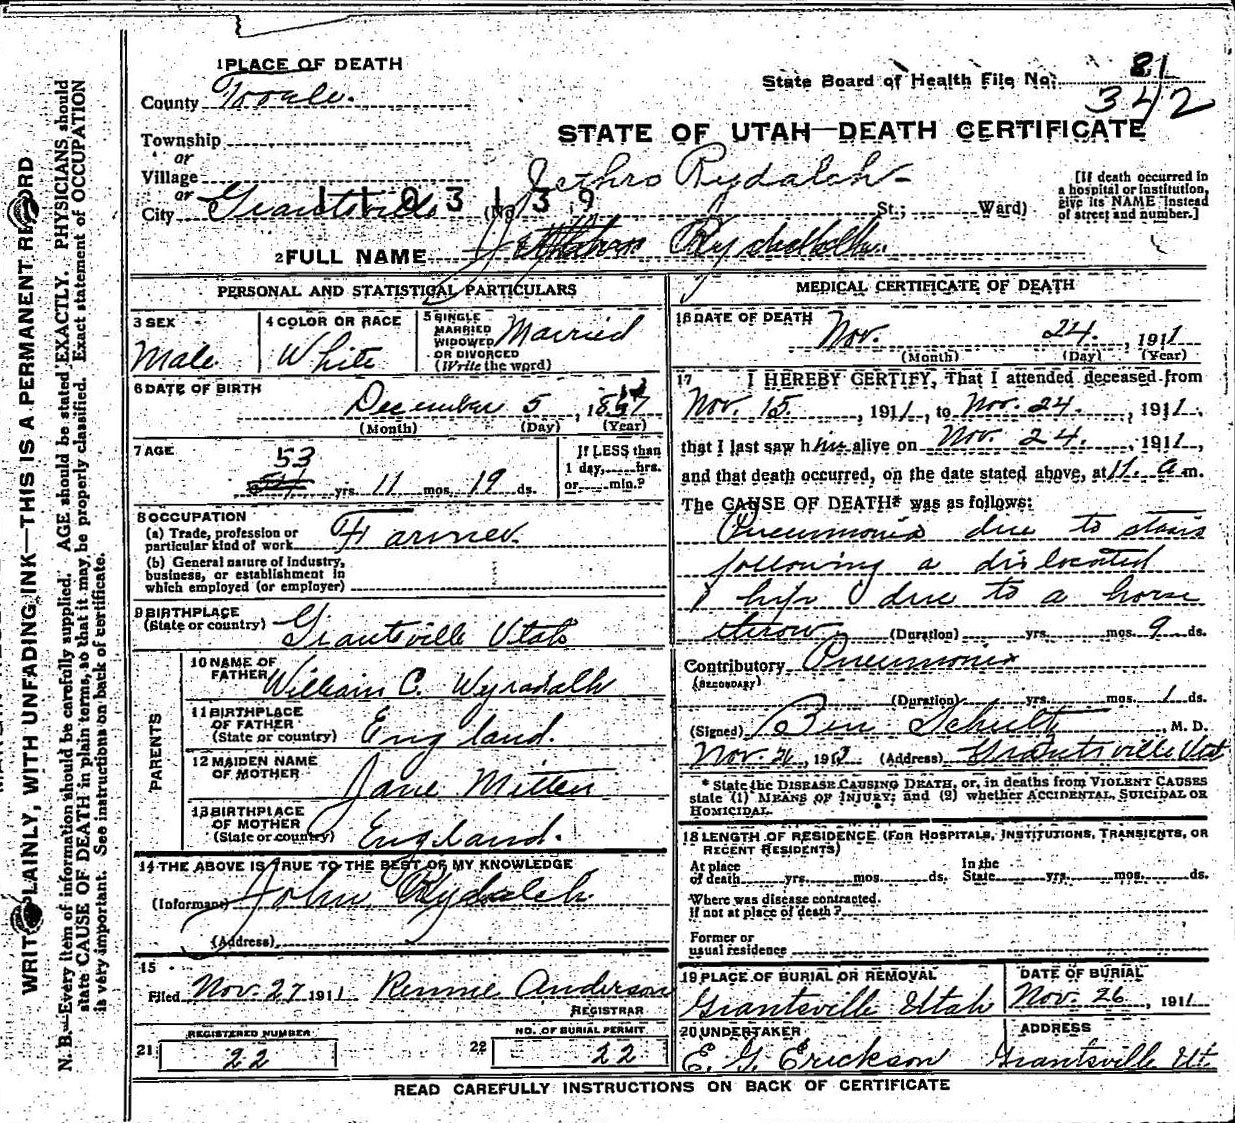 1 PLACE OF DEATH
State Board of Health File No. 81
342
County Tooele.
STATE OF UTAH—DEATH CERTIFICATE
Township
or
Village
or
Jethro Rydalch
City Grantsville (No. St.; Ward)
1103139
[If death occurred in a hospital or institution, give its NAME instead of street and number.]
2 FULL NAME
PERSONAL AND STATISTICAL PARTICULARS
3 SEX
Male
4 COLOR OR RACE
White
5 SINGLE MARRIED WIDOWED OR DIVORCED (Write the word)
Married
6 DATE OF BIRTH
December 5, 1857
(Month) (Day) (Year)
7 AGE
53
yrs. 11 mos. 19 ds.
If LESS than 1 day, hrs. or min.?
8 OCCUPATION
(a) Trade, profession or particular kind of work Farmer.
(b) General nature of industry, business, or establishment in which employed (or employer)
9 BIRTHPLACE
(State or country) Grantsville Utah
PARENTS
10 NAME OF FATHER William C. Wyradalh
11 BIRTHPLACE OF FATHER (State or country) England.
12 MAIDEN NAME OF MOTHER Jane Mitten
13 BIRTHPLACE OF MOTHER (State or country) England.
14 THE ABOVE IS TRUE TO THE BEST OF MY KNOWLEDGE
(Informant) John Rydalch.
(Address)
15
Filed Nov. 27 1911 Rennie Anderson
REGISTRAR
REGISTERED NUMBER
21 22
NO. OF BURIAL PERMIT
22 22
MEDICAL CERTIFICATE OF DEATH
16 DATE OF DEATH
Nov. 24. , 1911
(Month) (Day) (Year)
17 I HEREBY CERTIFY, That I attended deceased from
Nov. 15. , 1911, to Nov. 24. , 1911,
that I last saw him alive on Nov. 24. , 1911,
and that death occurred, on the date stated above, at 11. a m.
The CAUSE OF DEATH* was as follows:
Pneumonia due to stasis
following a dislocated
hip due to a horse
throw (Duration) yrs. mos. 9 ds.
Contributory Pneumonia
(SECONDARY)
(Duration) yrs. mos. 1 ds.
(Signed) Ben Schultz M. D.
Nov. 26, 191 (Address) Grantsville Utah
* State the DISEASE CAUSING DEATH, or, in deaths from VIOLENT CAUSES
state (1) MEANS OF INJURY; and (2) whether ACCIDENTAL, SUICIDAL OR
HOMICIDAL.
18 LENGTH OF RESIDENCE (FOR HOSPITALS, INSTITUTIONS, TRANSIENTS, OR
RECENT RESIDENTS)
At place of death yrs. mos. ds. In the State yrs. mos. ds.
Where was disease contracted,
If not at place of death?
Former or
usual residence
19 PLACE OF BURIAL OR REMOVAL
Grantsville Utah
DATE OF BURIAL
Nov. 26 , 1911
20 UNDERTAKER
E. G. Erickson
ADDRESS
Grantsville Ut.
READ CAREFULLY INSTRUCTIONS ON BACK OF CERTIFICATE
WRITE PLAINLY, WITH UNFADING INK—THIS IS A PERMANENT RECORD
N. B.—Every item of information should be carefully supplied. AGE should be stated EXACTLY. PHYSICIANS should
state CAUSE OF DEATH in plain terms, so that it may be properly classified. Exact statement of OCCUPATION
is very important. See instructions on back of certificate.